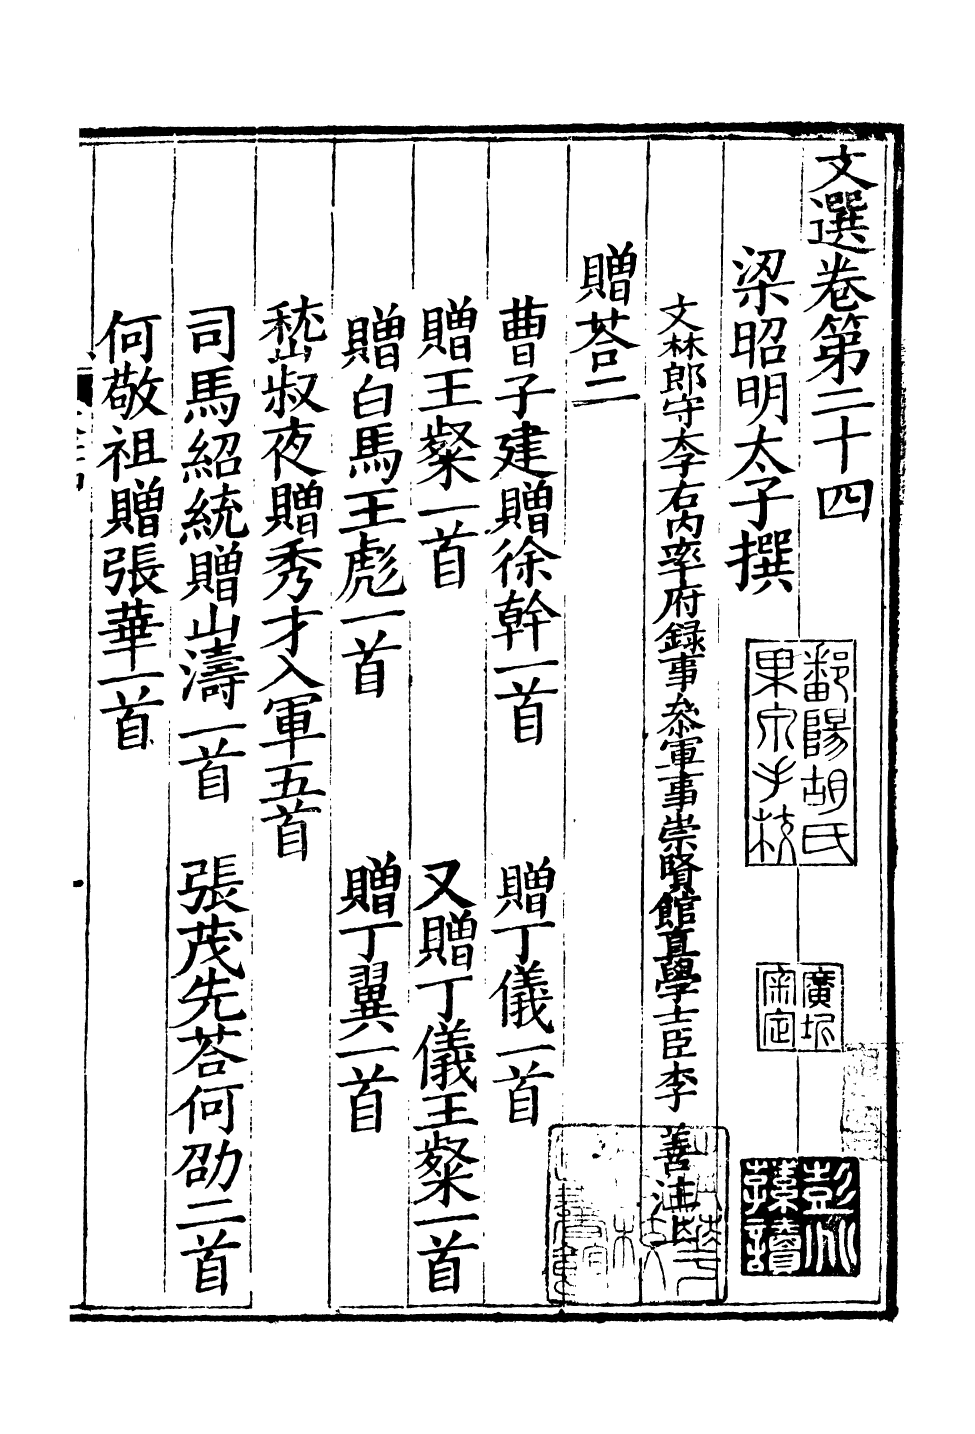 文選卷第二十四
梁昭明太子撰
文林郎守太子右內率府録事叅軍事崇賢館直學士臣李善注
贈荅二
曹子建贈徐幹一首 贈丁儀一首
贈王粲一首 又贈丁儀王粲一首
贈白馬王彪一首 贈丁翼一首
嵇叔夜贈秀才入軍五首
司馬紹統贈山濤一首 張茂先荅何劭二首
何敬祖贈張華一首
鄱陽胡氏
果泉手校